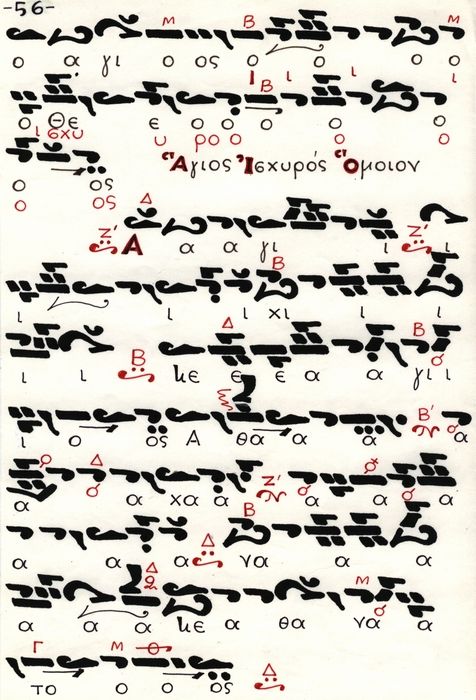 -56-
Μ Β Μ
ο α γι ο ος ο ο ο ο
Β
ο Θε ε ο ο ο ο ο
ι σχυ υ ρο ο ο ο
Ἅγιος Ἰσχυρός Ὅμοιον
ο ος
ο ος
Δ
Ζ' Α α α γι ι Ζ' ι
Β
ι ι ι ι χι ι ι ι
Δ Β
ι ι Β κε ε ε α α γι ι
Β'
ι ο ος Α θα α α α
Δ Ζ'
α α χα α α α α
Β
α α α Δ να α α
Δ Μ
α α α κε α θα να α
Γ Μ
το ο ο ος Δ